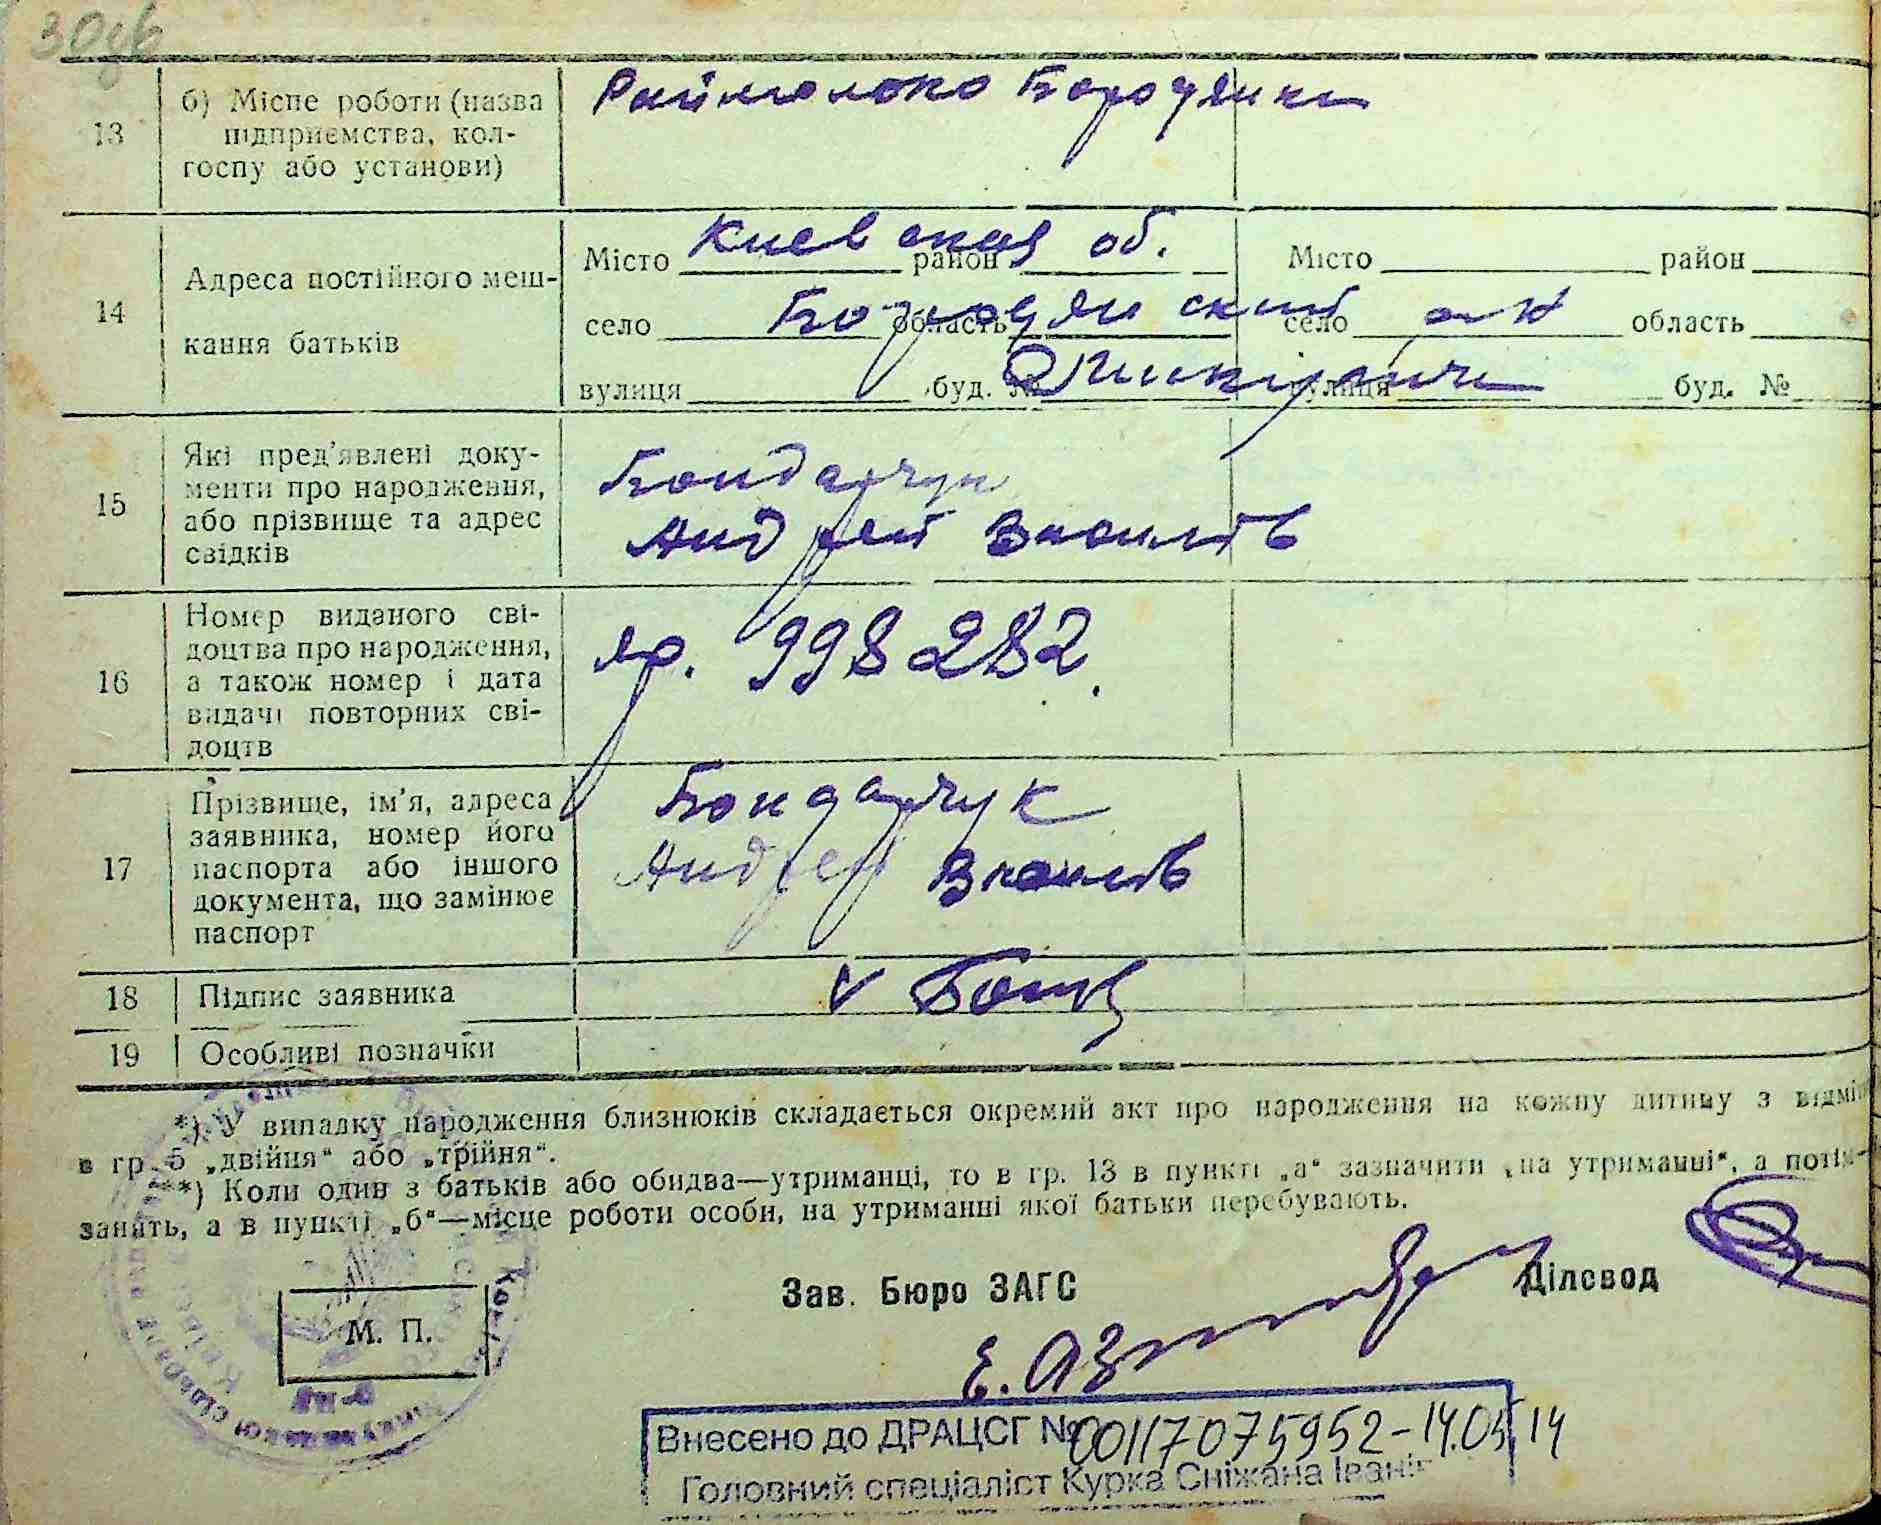 30дв
13
б) Місце роботи (назва
підприємства, кол-
госпу або установи)
Раймолоко Бородянка
14
Адреса постійного меш-
кання батьків
Місто Киевская район об. Місто район
село Бородянский область село р-н область
вулиця буд. № вулиця буд. №
15
Які пред'явлені доку-
менти про народження,
або прізвище та адрес
свідків
Бондарчук
Андрей Васильев
16
Номер виданого сві-
доцтва про народження,
а також номер і дата
видачі повторних сві-
доцтв
яр. 998282.
17
Прізвище, ім'я, адреса
заявника, номер його
паспорта або іншого
документа, що замінює
паспорт
Бондарчук
Андрей Васильев
18 Підпис заявника
v
19 Особливі позначки
*) У випадку народження близнюків складається окремий акт про народження на кожну дитину з відмі
в гр. 5 „двійня“ або „трійня“.
**) Коли один з батьків або обидва—утриманці, то в гр. 13 в пункті „а“ зазначити „на утриманні“, а потім-
занять, а в пункті „б“—місце роботи особи, на утриманні якої батьки перебувають.
Зав. Бюро ЗАГС Діловод
М. П.
Внесено до ДРАЦСГ № 00117075952-14.05.14
Головний спеціаліст Курка Сніжана Іванів